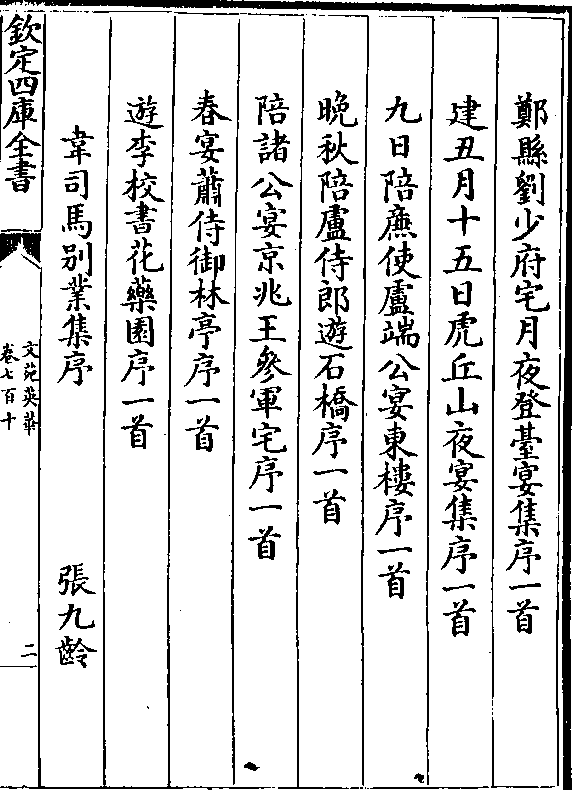 鄭縣劉少府宅月夜登臺宴集序一首
建丑月十五日虎丘山夜宴集序一首
九日陪廉使盧端公宴東樓序一首
晚秋陪盧侍郎遊石橋序一首
陪諸公宴京兆王參軍宅序一首
春宴蕭侍御林亭序一首
遊李校書花藥園序一首
韋司馬别業集序 張九齡
欽定四庫全書
文苑英華
卷七百十
二